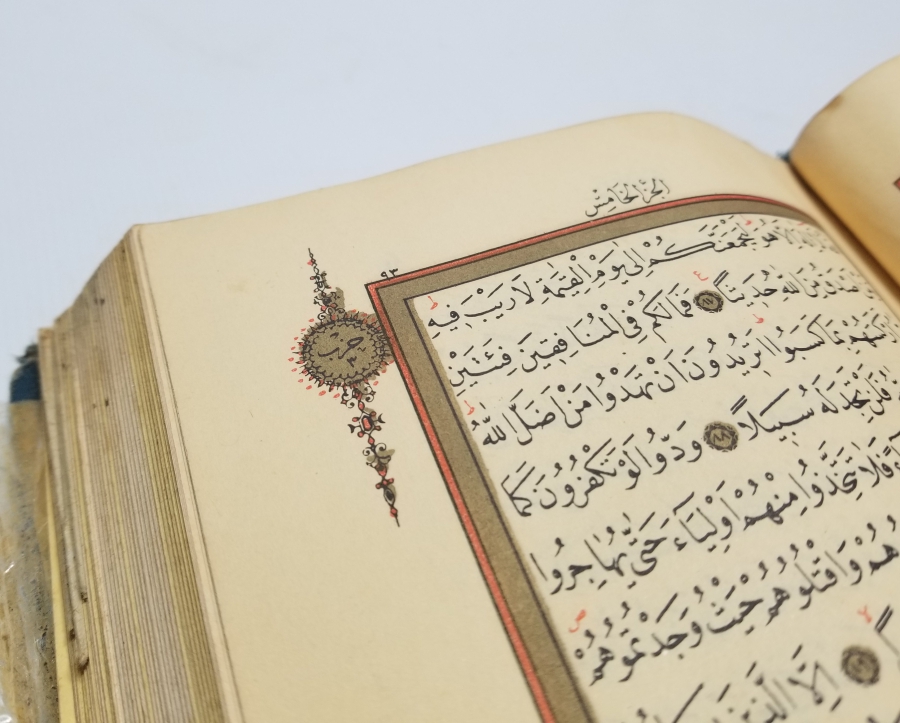 الجزء الخامس
٩٣
حزب
٣
هو ليجمعنكم إلى يوم القيمة لا ريب فيه ط
ومن أصدق من الله حديثاً ۝٨٧ ع فما لكم في المنافقين فئتين
بما كسبوا ط اتريدون ان تهدوا من أضل الله ط
فلن تجد له سبيلاً ۝٨٨ ودوا لو تكفرون كما
فلا تتخذوا منهم اولياء حتى يهاجروا
هم واقتلوهم حيث وجدتموهم ص
لا ۝٨٩ إلا الذين